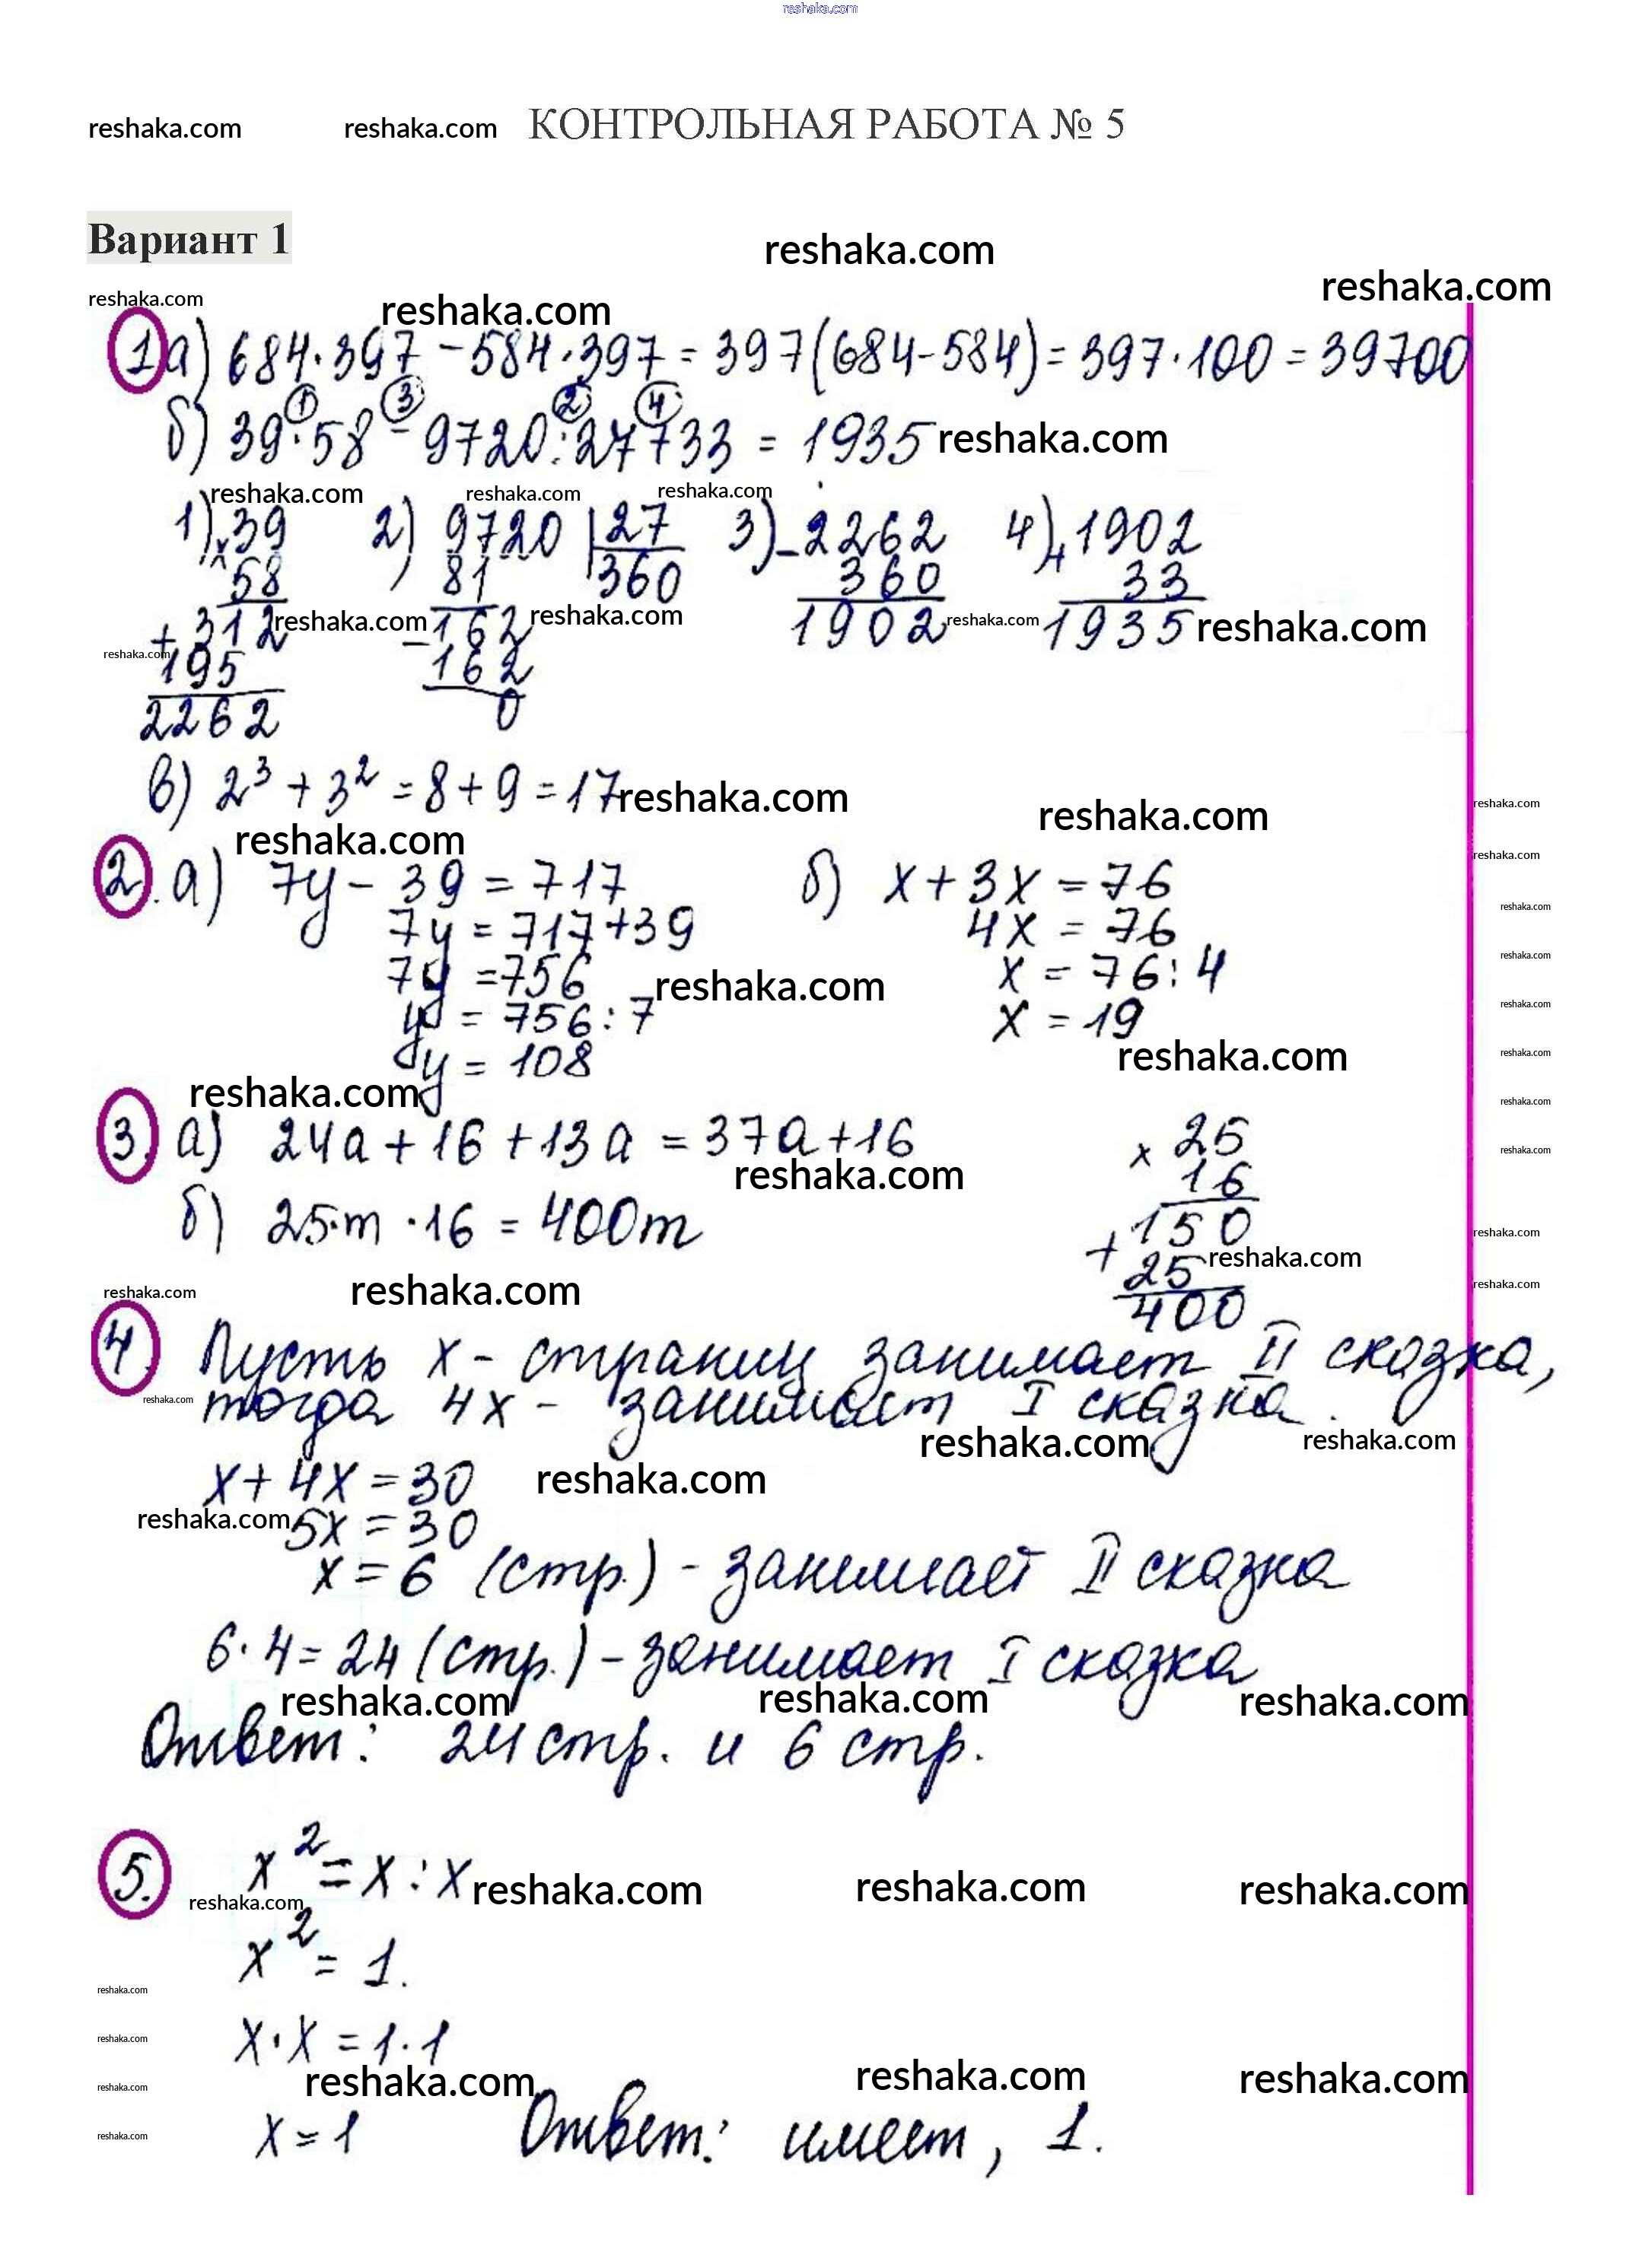 reshaka.com
reshaka.com reshaka.com КОНТРОЛЬНАЯ РАБОТА № 5
Вариант 1
reshaka.com
reshaka.com
reshaka.com reshaka.com
1 а) 684·397 - 584·397 = 397(684-584) = 397·100 = 39700
① ③ ② ④
б) 39·58 - 9720:27+33 = 1935 reshaka.com
reshaka.com reshaka.com reshaka.com
1) 39 2) 9720 27 3) - 2262 4) + 1902
× 58 81 360 360 33
+ 312 reshaka.com - 162 reshaka.com 1902 reshaka.com 1935 reshaka.com
reshaka.com 195 162
2262 0
в) 2³ + 3² = 8 + 9 = 17 reshaka.com
reshaka.com
reshaka.com
reshaka.com
reshaka.com
2. а) 7у - 39 = 717 б) х + 3х = 76
reshaka.com
7у = 717+39 4х = 76
reshaka.com
7у = 756 х = 76:4
reshaka.com
у = 756:7 х = 19
reshaka.com
у = 108
reshaka.com
reshaka.com
reshaka.com
reshaka.com
3. а) 24а + 16 + 13а = 37а + 16 × 25
reshaka.com
reshaka.com 16
б) 25·m·16 = 400m + 150
reshaka.com
25 reshaka.com
reshaka.com
400
reshaka.com reshaka.com
4. Пусть х - страниц занимает II сказка,
reshaka.com
тогда 4х - занимает I сказка.
reshaka.com reshaka.com
х + 4х = 30 reshaka.com
reshaka.com 5х = 30
х = 6 (стр.) - занимает II сказка
6·4 = 24 (стр.) - занимает I сказка
reshaka.com reshaka.com reshaka.com
Ответ: 24 стр. и 6 стр.
5. х² = х : х reshaka.com reshaka.com reshaka.com
reshaka.com
х² = 1.
reshaka.com
х·х = 1·1
reshaka.com
reshaka.com reshaka.com reshaka.com
reshaka.com
х = 1 Ответ: имеет, 1.
reshaka.com